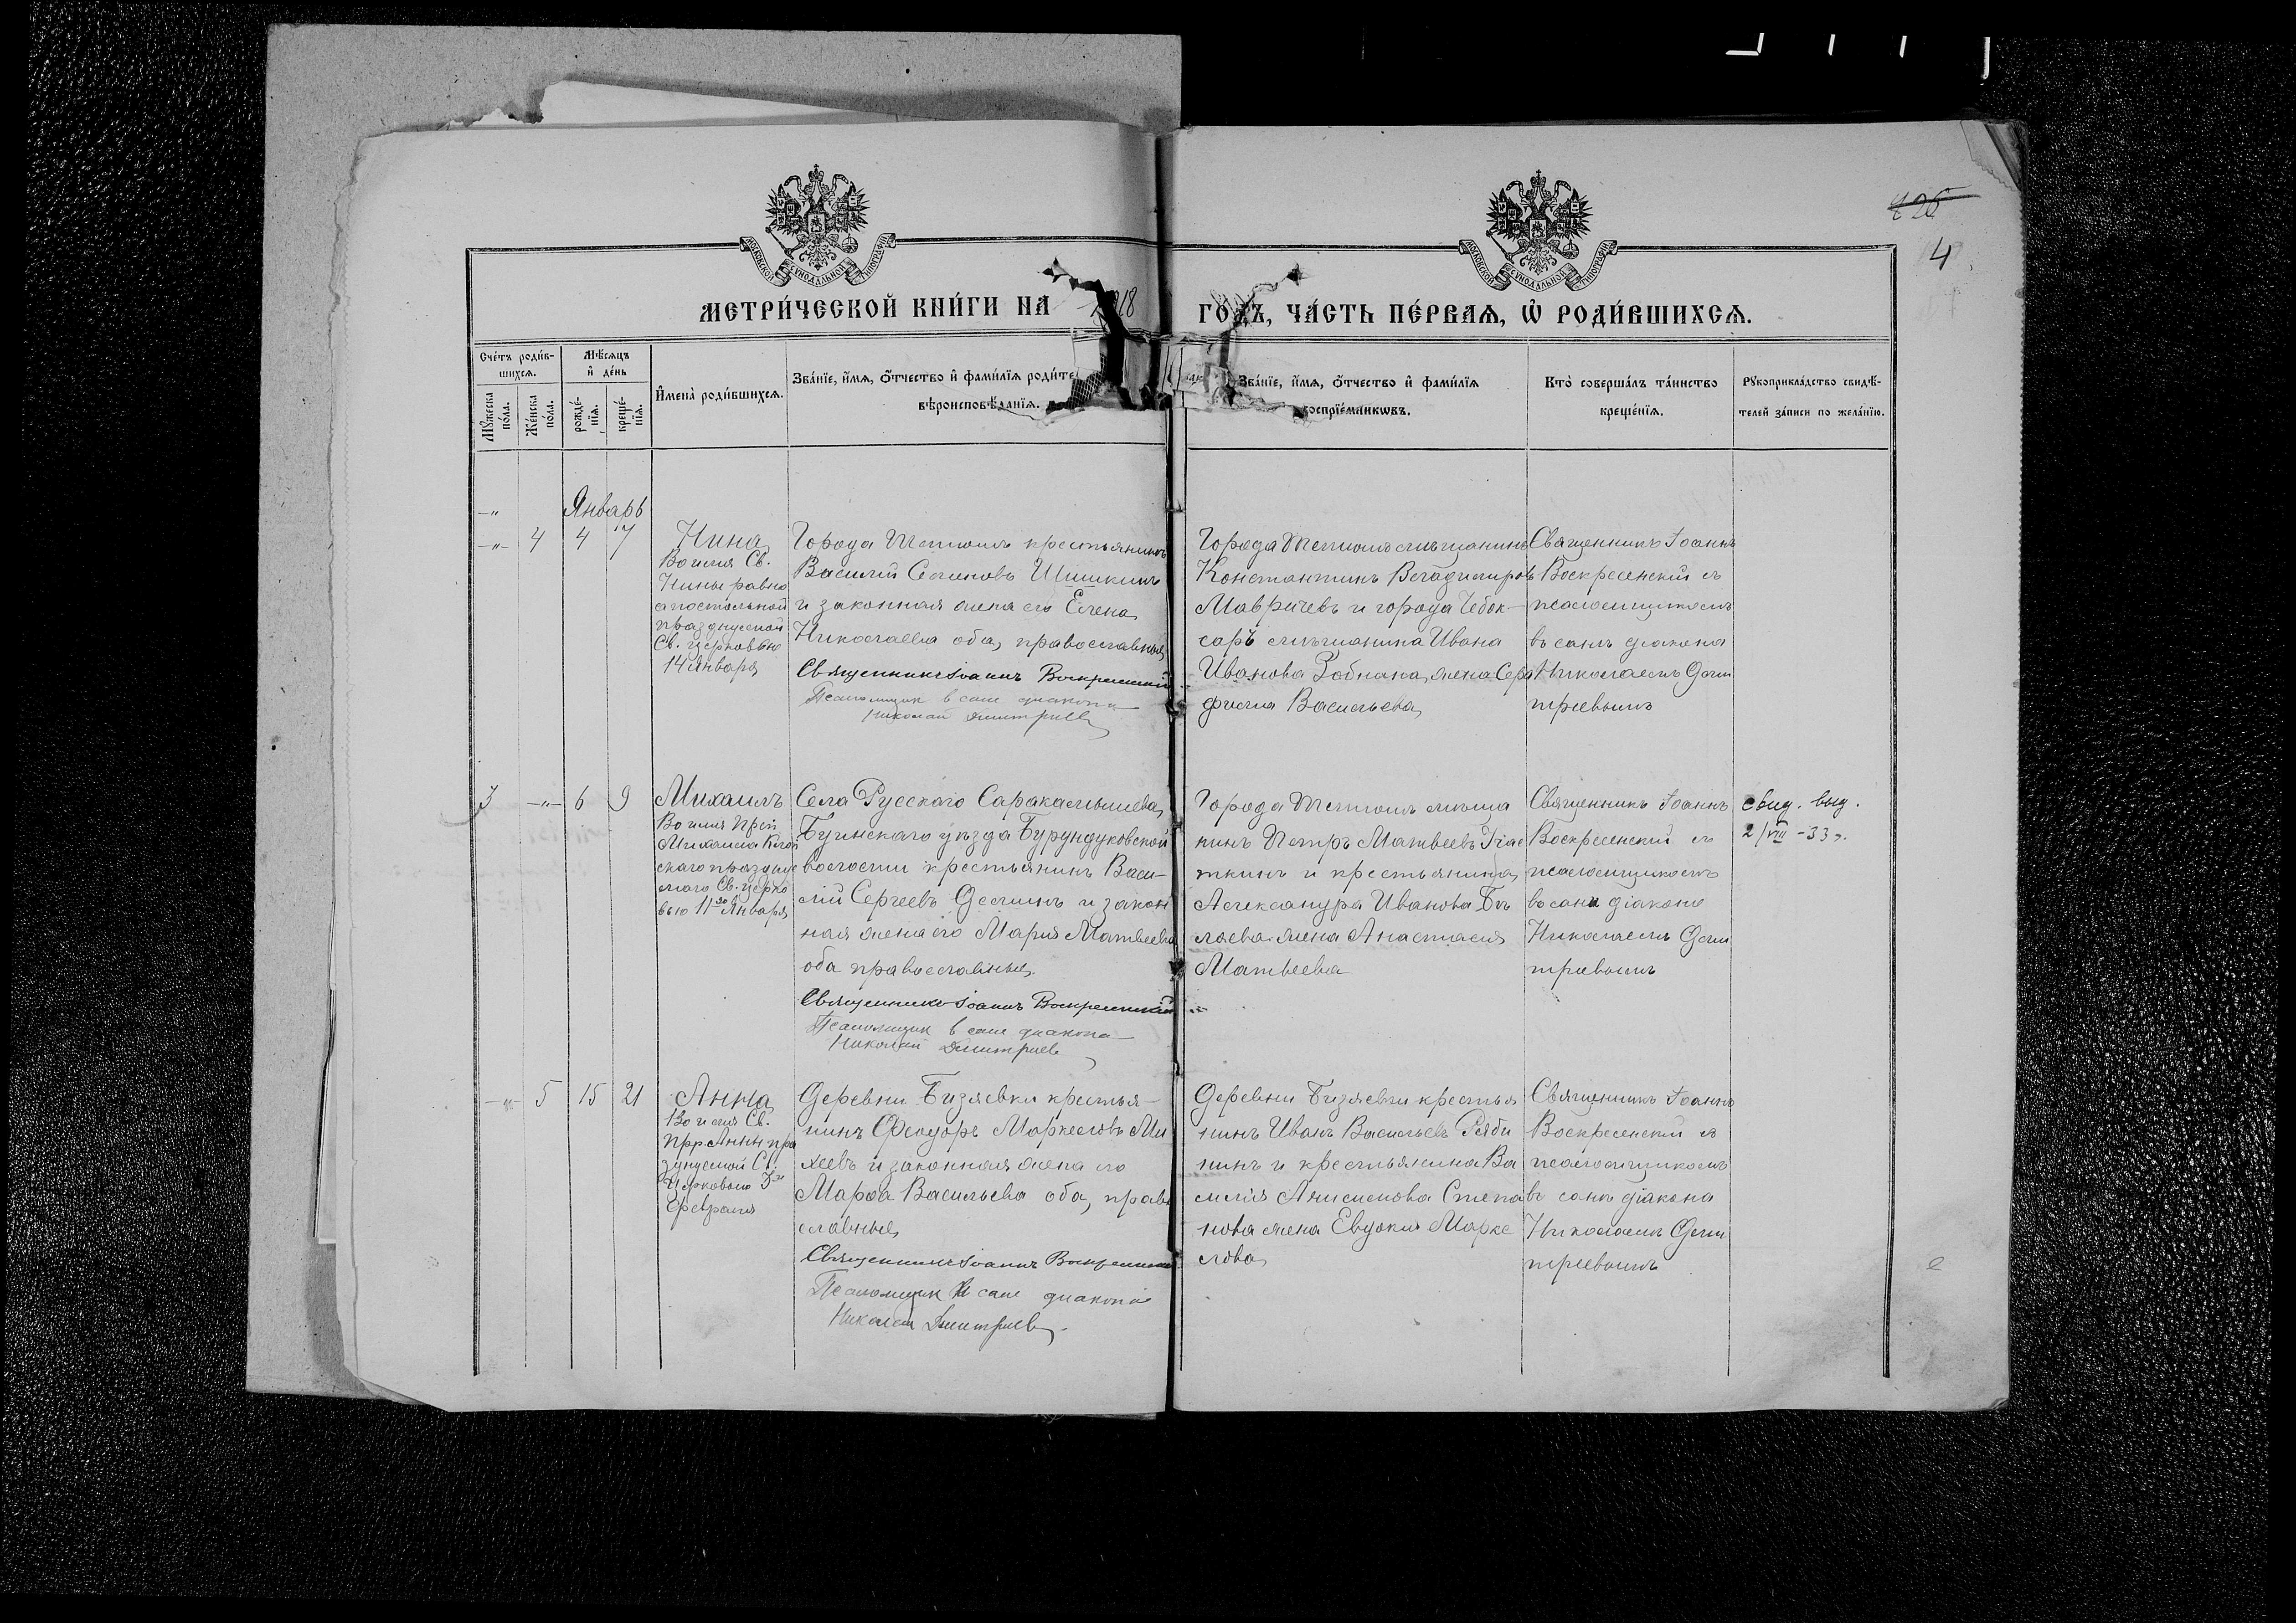 426
4
МОСКОВСКОЙ СѴНОДАЛЬНОЙ ТИПОГРАФІИ
МОСКОВСКОЙ СѴНОДАЛЬНОЙ ТИПОГРАФІИ
МЕТРИ́ЧЕСКОЙ КНИ́ГИ НА 1918 ГО́ДЪ, ЧА́СТЬ ПЕ́РВАѦ, Ѡ҆ РОДИ́ВШИХСѦ.
Сче́тъ роди́в-
шихсѧ.
Мѣ́сѧцъ
и҆ де́нь
Мꙋ́жеска
по́ла.
Же́нска
по́ла.
рожде́-
нїѧ.
креще́-
нїѧ.
И҆мена̀ роди́вшихсѧ.
Зва́нїе, и҆́мѧ, ѻ҆́тчество и҆ фами́лїѧ роди́те
вѣроисповѣ́данїѧ.
Зва́нїе, и҆́мѧ, ѻ҆́тчество и҆ фами́лїѧ
воспрїе́мникѡвъ.
Кто̀ соверша́лъ та́инство
креще́нїѧ.
Рꙋкоприкла́дство свидѣ́-
телей за́писи по жела́нїю.
Январь
4 4 7
Нина
Во имя Св.
Нины равно
апостольной
празднуемой
Св. церковью
14 января
Города Тетюшъ крестьянинъ
Василій Семеновъ Шишкинъ
и законная жена его Елена
Николаева оба православные
Священникъ Іоаннъ Воскресенскій
Псаломщик в сане диакона
Николай Дмитриев
Города Тетюшъ мѣщанинъ
Константинъ Владимировъ
Мавричевъ и города Чебок-
саръ мѣщанина Ивана
Иванова жена Сера
фима Васильева
Священникъ Іоаннъ
Воскресенскій съ
псаломщикомъ
въ санѣ діакона
Николаемъ Дми
тріевымъ
3 -"- 6 9
Михаилъ
Во имя Преп
Михаила Клоп
скаго праздну
емаго Св. церко
вью 11го Января
Села Русскаго Саракамышева
Буинскаго уѣзда Бурундуковской
волости крестьянинъ Васи-
лій Сергеевъ Деминъ и закон
ная жена его Марія Матвеева
оба православные
Священникъ Іоаннъ Воскресенскій
Псаломщик в сане диакона
Николай Дмитриев
Города Тетюшъ мѣща
нинъ Петръ Матвеевъ
ткинъ и крестьянина
Александра Иванова Бѣ
лаева жена Анастасія
Матвеева
Священникъ Іоаннъ
Воскресенскій съ
псаломщикомъ
въ санѣ діакона
Николаемъ Дми
тріевымъ
свид. выд.
2/VIII-33г.
-"- 5 15 21
Анна
Во имя Св.
Прр. Анны пра
зднуемой Св.
Церковью 3го
Февраля
Деревни Бизяевки крестья-
нинъ Феодоръ Маркеловъ Ми
хеевъ и законная жена его
Марфа Васильева оба право
славные
Священникъ Іоаннъ Воскресенскій
Псаломщик в сане диакона
Николай Дмитриев
Деревни Бизяевки крестья
нинъ Иванъ Васильевъ Ряби
нинъ и крестьянина Ва
силія Анисимова Степа
нова жена Евдокія Марке
лова
Священникъ Іоаннъ
Воскресенскій съ
псаломщикомъ
въ санѣ діакона
Николаемъ Дми
тріевымъ